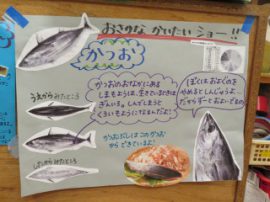 おさかな かいたい ショー!!
かつお
うえからみたところ
かつおのおなかにある
しまもようは、生きているときは
ぎんいろ。しんでしまうと
くろいしもようになるんだよ!
ぼくはおよぐのを
やめるとしんじゃうよ…
だからずーとおよいでるの
したからみたところ
かつおぶしはこのかつお
からできているよ!